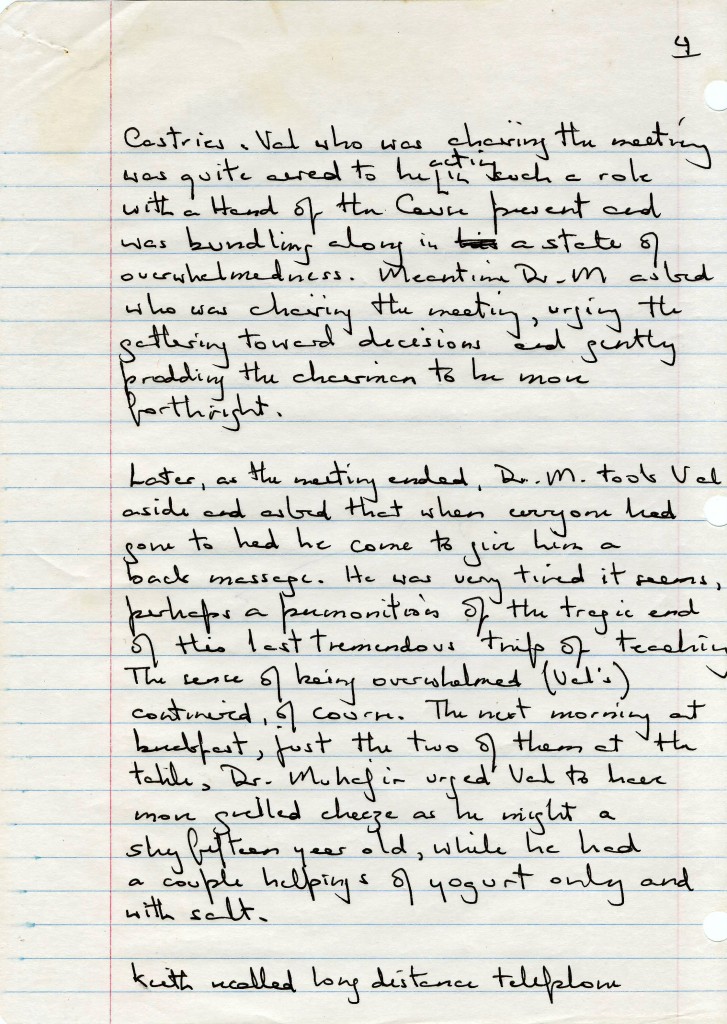 4
Castries. Val who was chairing the meeting
was quite awed to be acting in such a role
with a Hand of the Cause present and
was bundling along in a state of
overwhelmedness. Meantime Dr. M asked
who was chairing the meeting, urging the
gathering toward decisions and gently
prodding the chairman to be more
forthright.
Later, as the meeting ended, Dr. M. took Val
aside and asked that when everyone had
gone to bed he come to give him a
back massage. He was very tired it seems,
perhaps a premonition of the tragic end
of this last tremendous trip of teaching
The sense of being overwhelmed (Val's)
continued, of course. The next morning at
breakfast, just the two of them at the
table, Dr. Muhajir urged Val to have
more grilled cheeze as he might a
shy fifteen year old, while he had
a couple helpings of yogurt only and
with salt.
Keith recalled long distance telephone